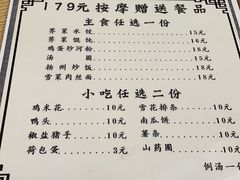 179元按摩赠送餐品
主食任选一份
荠菜水饺 15元
荠菜馄饨 16元
鸡蛋炒河粉 18元
汤圆 15元
扬州炒饭 18元
雪菜肉丝面 18元
小吃任选二份
鸡米花 10元 雪花排条 10元
鸭头 10元 南瓜饼 10元
椒盐猪手 10元 薯条 10元
荷包蛋 3元 山药圈 10元
例汤一份